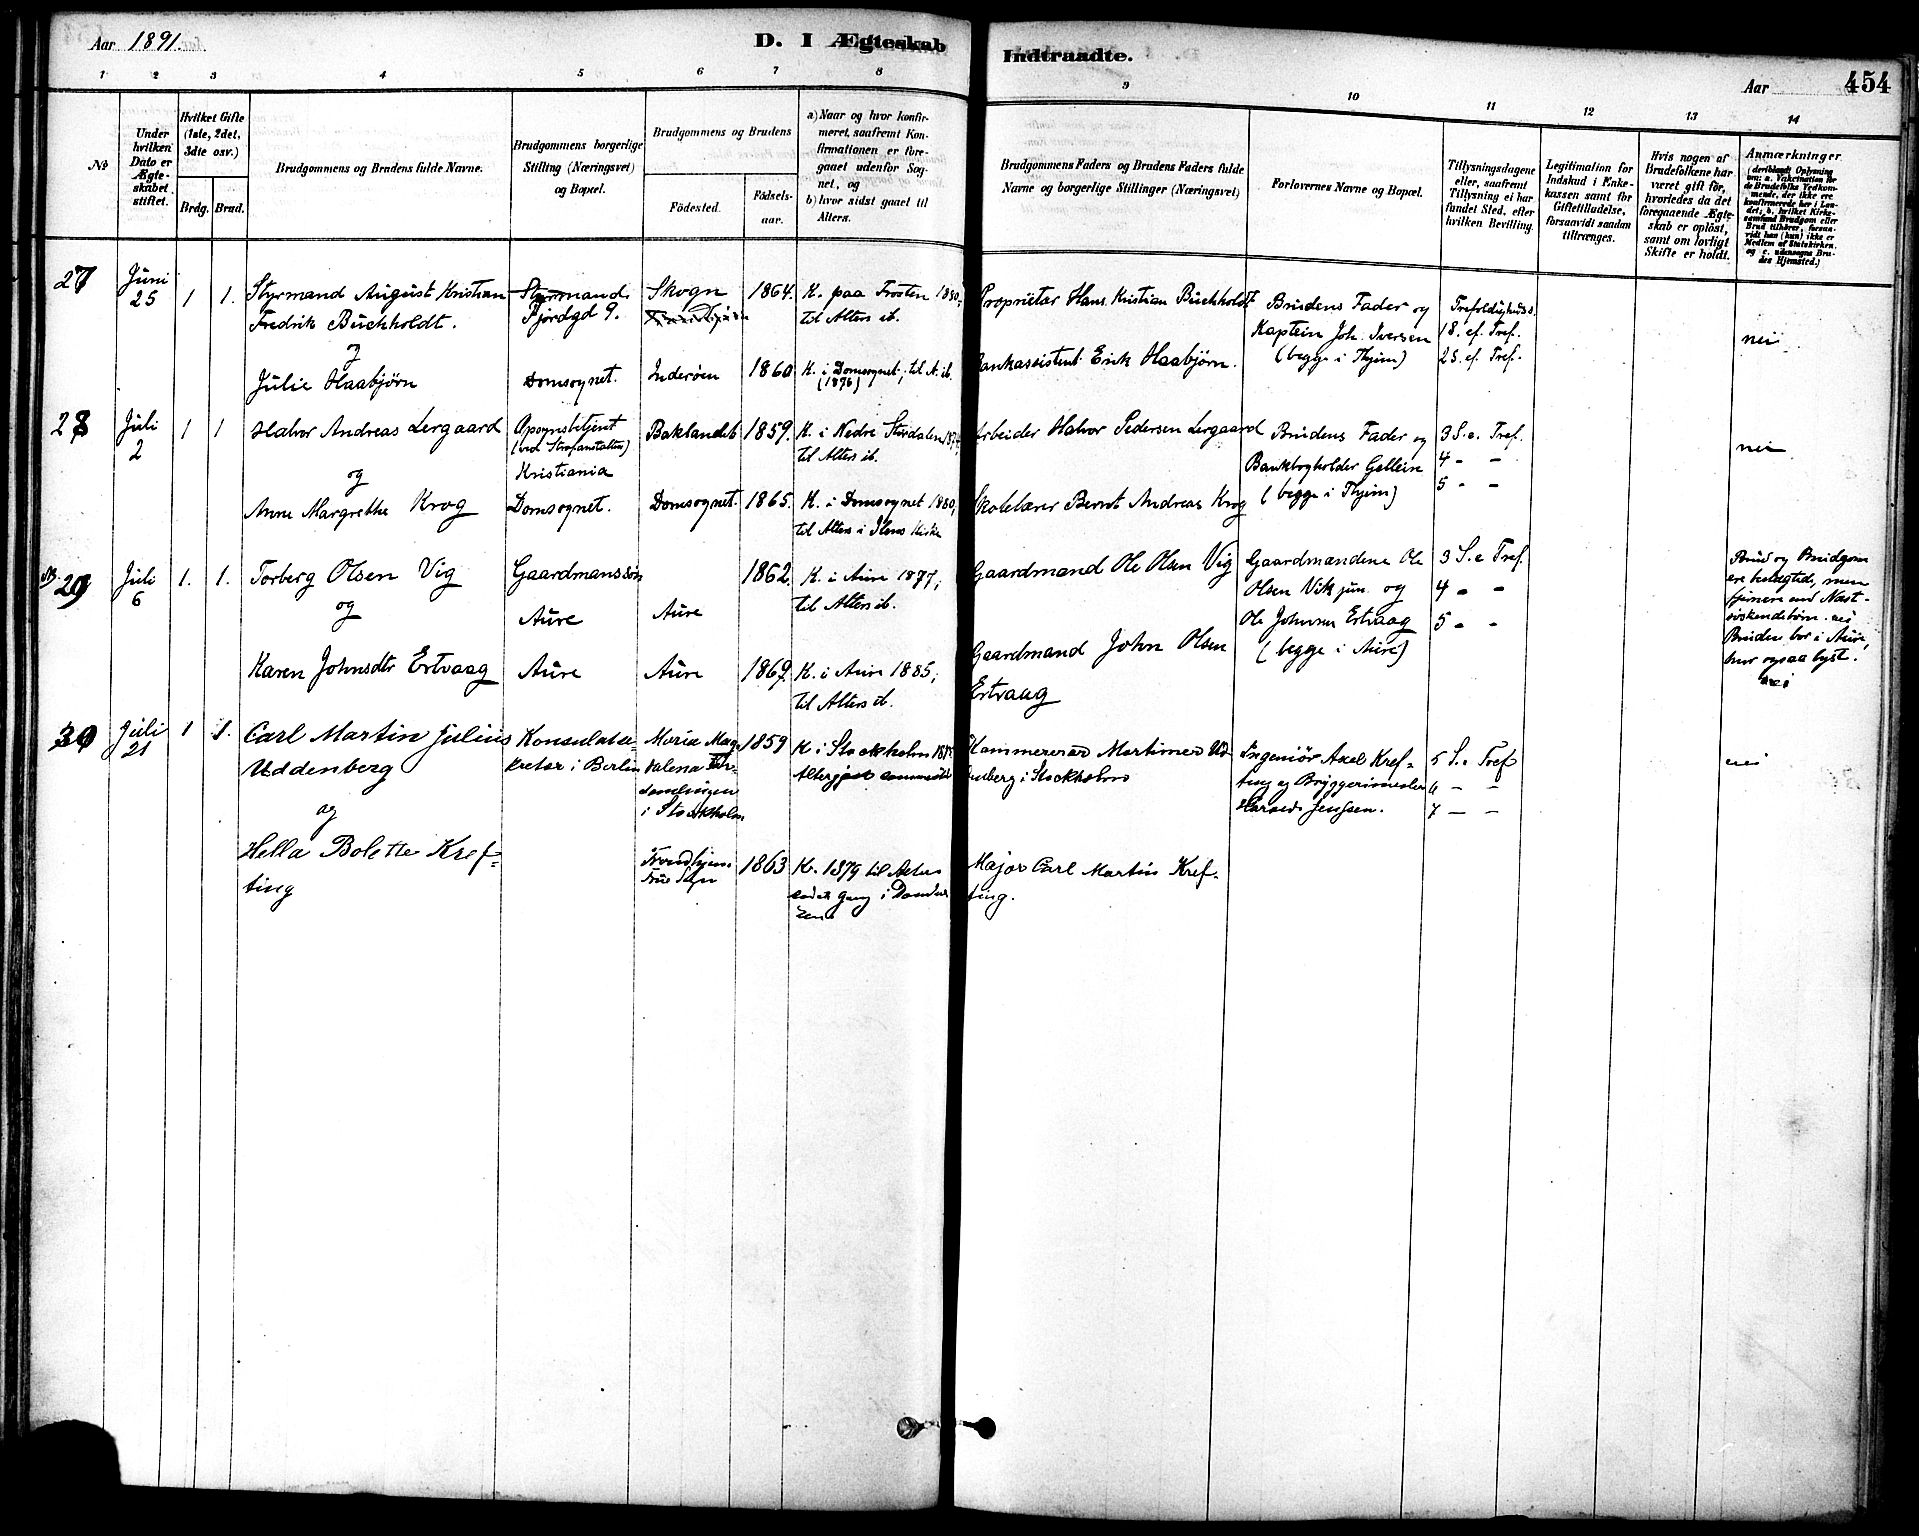 Aar 1891.
D. I Ægteskab
Indtraadte.
Aar
454
1 2 3 4 5 6 7 8 9 10 11 12 13 14
No
Under hvilken Dato er Ægteskabet stiftet.
Hvilket Gifte (1ste, 2det, 3die osv.)
Brdg. Brud.
Brudgommens og Brudens fulde Navne.
Brudgommens borgerlige Stilling (Næringsvei) og Bopæl.
Brudgommens og Brudens
Födested.
Födsels-aar.
a) Naar og hvor konfirmeret, saafremt Konfirmationen er foregaaet udenfor Sognet, og
b) hvor sidst gaaet til Alters.
Brudgommens Faders og Brudens Faders fulde Navne og borgerlige Stillinger (Næringsvei)
Forlovernes Navne og Bopæl.
Tillysningsdagene eller, saafremt Tillysning ei har fundet Sted, efter hvilken Bevilling.
Legitimation for Indskud i Enkekassen samt for Giftetilladelse, forsaavidt saadan tiltrænges.
Hvis nogen af Brudefolkene har været gift för, hvorledes da det foregaaende Ægteskab er oplöst, samt om lovligt Skifte er holdt.
Anmærkninger
27
Juni
25
1 1.
Styrmand August Kristian
Fredrik Buchholdt.
og
Julie Haabjørn
Styrmand.
Fjordgd 9.
Domsognet.
Skogn
Inderøen
1864.
1860
K. paa Frosten 1880;
til Alters ib.
K. i Domsognet; til A. ib.
(1876)
Proprietær Hans Kristian Buchholdt
Bankassistent Erik Haabjørn.
Brudens Fader og
Kaptein Joh. Iversen
(begge i Thjem)
Trefoldighedss.
18. ef. Tref.
25. ef. Tref.
nei
28
Juli
2
1 1
Halvor Andreas Lergaard
og
Anne Margrethe Krog
Opsynsbetjent
(ved Strafanstalten)
Kristiania
Domsognet.
Baklandet
Domsognet.
1859.
1865.
K. i Nedre Stördalen 1874;
til Alters ib.
K. i Domsognet 1880,
til Alters i Ilens Kirke
Arbeider Halvor Pedersen Lergaard
Skolelærer Bernt Andreas Krog
Brudens Fader og
Bankbogholder Gellein
(begge i Thjem)
3 S. e. Tref.
4 - -
5 - -
nei
29
Juli
6
1. 1.
Torberg Olsen Vig
og
Karen Johnsdtr Ertvaag
Gaardmanssøn
Aure
Aure
Aure
Aure
1862.
1869.
K. i Aure 1877,
til Alters ib.
K. i Aure 1885,
til Alters ib.
Gaardmand Ole Olsen Vig
Gaardmand John Olsen
Ertvaag
Gaardmændene Ole
Olsen Vik jun. og
Ole Johnsen Ertvaag
(begge i Aure)
3 S. e Tref.
4 - -
5 - -
Brud og Brudgom
ere beslægtede, men
fjernere end Næst-
söskendebörn. nei
Bruden bor i Aure,
hvor ogsaa lyst.
nei
30
Juli
21
1 1.
Carl Martin Julius
Uddenberg
og
Hella Bolette Kref-
ting
Konsulatse-
kretær i Berlin
Maria Mag-
dalena För-
samlingen
i Stockholm
Trondhjem
Frue Sogn
1859
1863
K i Stockholm
K. 1879 til Alters
sidste gang i Dom
Kammererar Mortimer Ud-
enberg i Stockholm
Major Carl Martin Kref-
ting.
Ingeniör Axel Kref-
ting og Bryggerimester
Harald Jenssen.
5 S. e Tref
6 - -
7 - -
nei